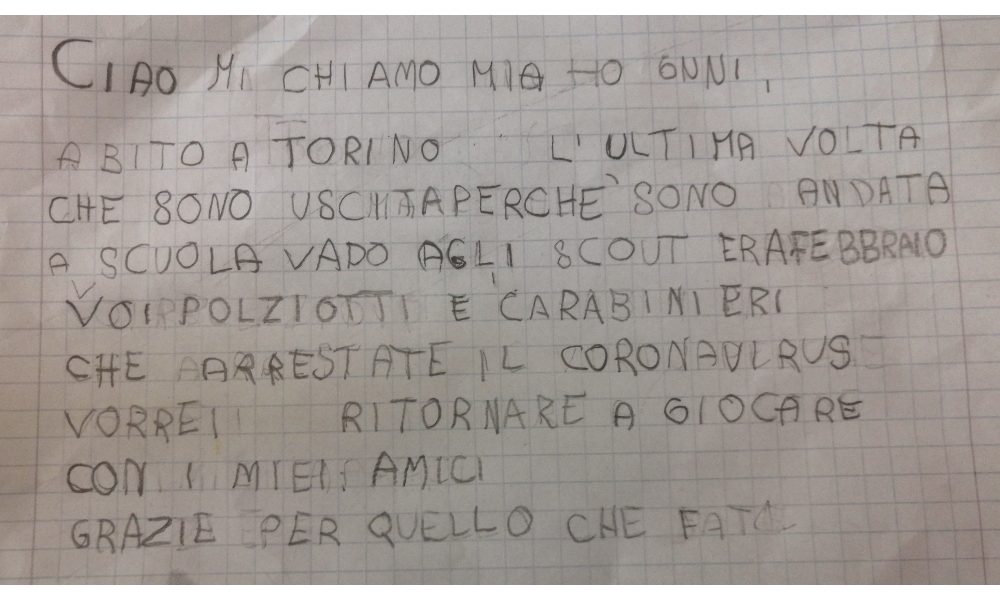 CIAO MI CHIAMO MIA HO 6NNI,
ABITO A TORINO L'ULTIMA VOLTA
CHE SONO USCITA PERCHE' SONO ANDATA
A SCUOLA VADO AGLI SCOUT ERA FEBBRAIO
VOI POLZIOTTI E CARABINIERI
CHE ARRESTATE IL CORONAVLRUS
VORREI RITORNARE A GIOCARE
CON I MIEI AMICI
GRAZIE PER QUELLO CHE FATE